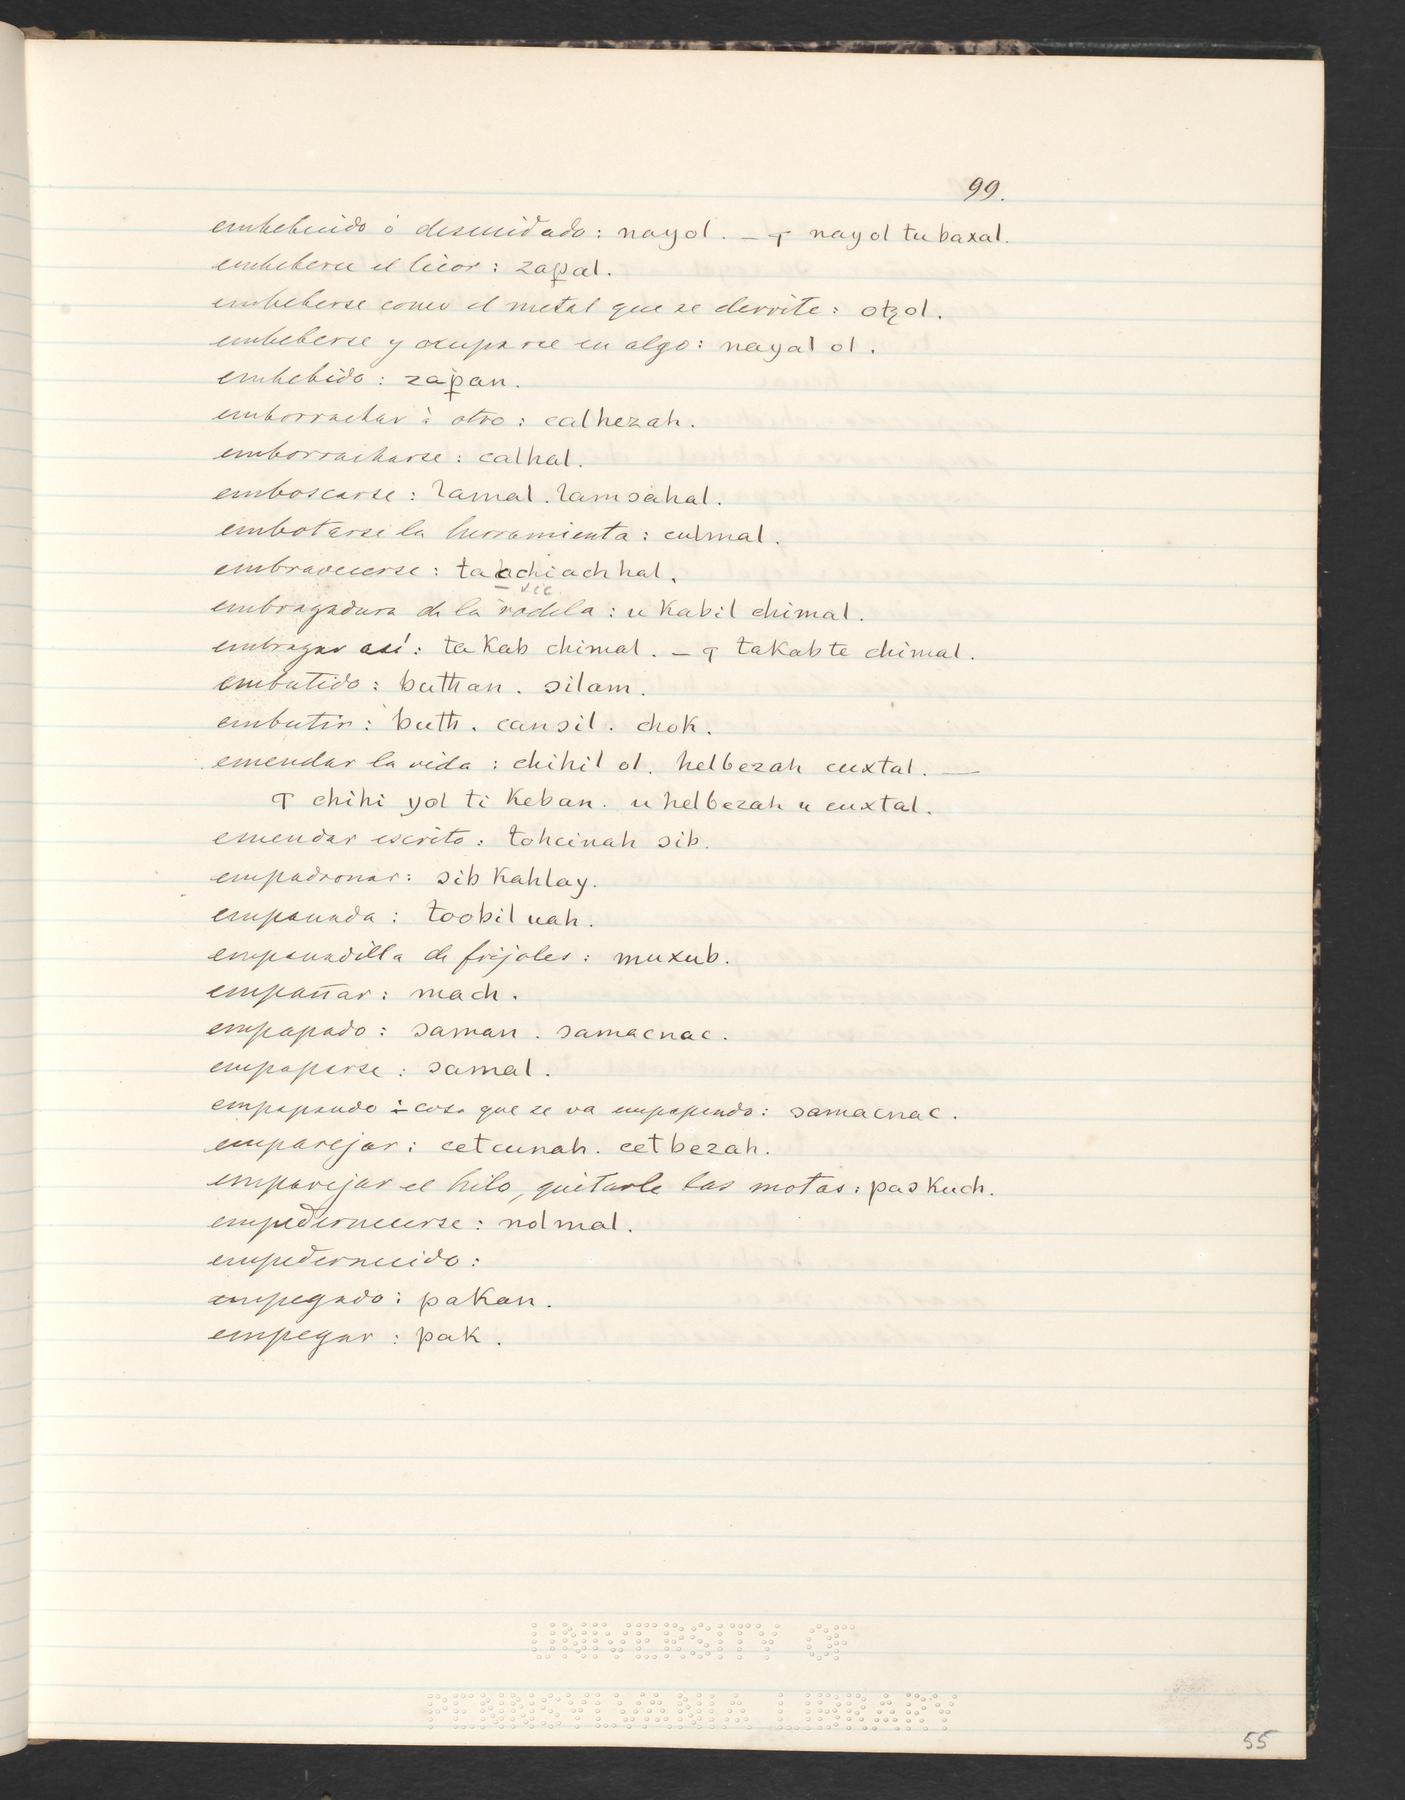 99.
embebecido ó descuidado: nayol. — ꟼ nayol tu baxal.
embeberse el licor: zapal.
embeberse como el metal que se derrite: otzol.
embeberse y ocuparse en algo: nayal ol.
embebido: zapan.
emborrachar à otro: calhezah.
emborracharse: calhal.
emboscarse: lamal. lamɔahal.
embotarse la herramienta: culmal.
embravecerse: ta achiachhal.
sic
embragadura de la rodela: u Kabil chimal.
embragar así: ta Kab chimal. — ꟼ taKabte chimal.
embutido: buthan. ɔilam.
embutir: buth. canɔil. choK.
emendar la vida: chihil ol. helbezah cuxtal. —
ꟼ chihi yol ti Keban. u helbezah u cuxtal.
emendar escrito: tohcinah ɔib.
empadronar: ɔib Kahlay.
empanada: toobil uah.
empanadilla de frijoles: muxub.
empañar: mach.
empapado: ɔaman. ɔamacnac.
empaparse: ɔamal.
empapando ÷ cosa que se va empapando: ɔamacnac.
emparejar: cetcunah. cetbezah.
emparejar el hilo, quitarle las motas: paɔ Kuch.
empedernecerse: nolmal.
empedernecido:
empegado: paKan.
empegar: paK.
UNIVERSITY OF
PENNSYLVANIA LIBRARY
55